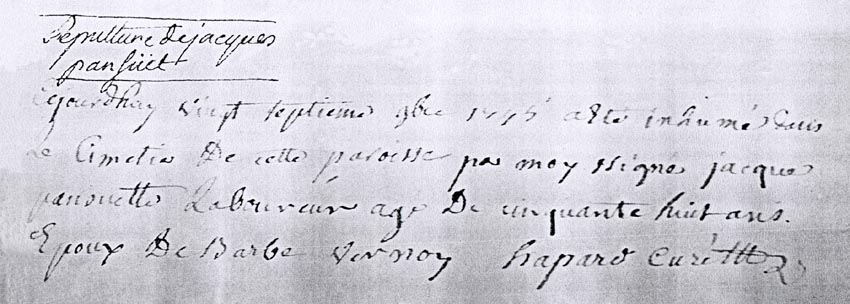 Sepulture de jacques
pansüet
Cejourdhuy vingt septieme 9bre a eté inhumé dans
Le Cimetie De cette paroisse par moy ssigné jacque
pansuette Laboureur agé De cinquante huit ans.
Epoux De Barbe Vernoy hapard Curé